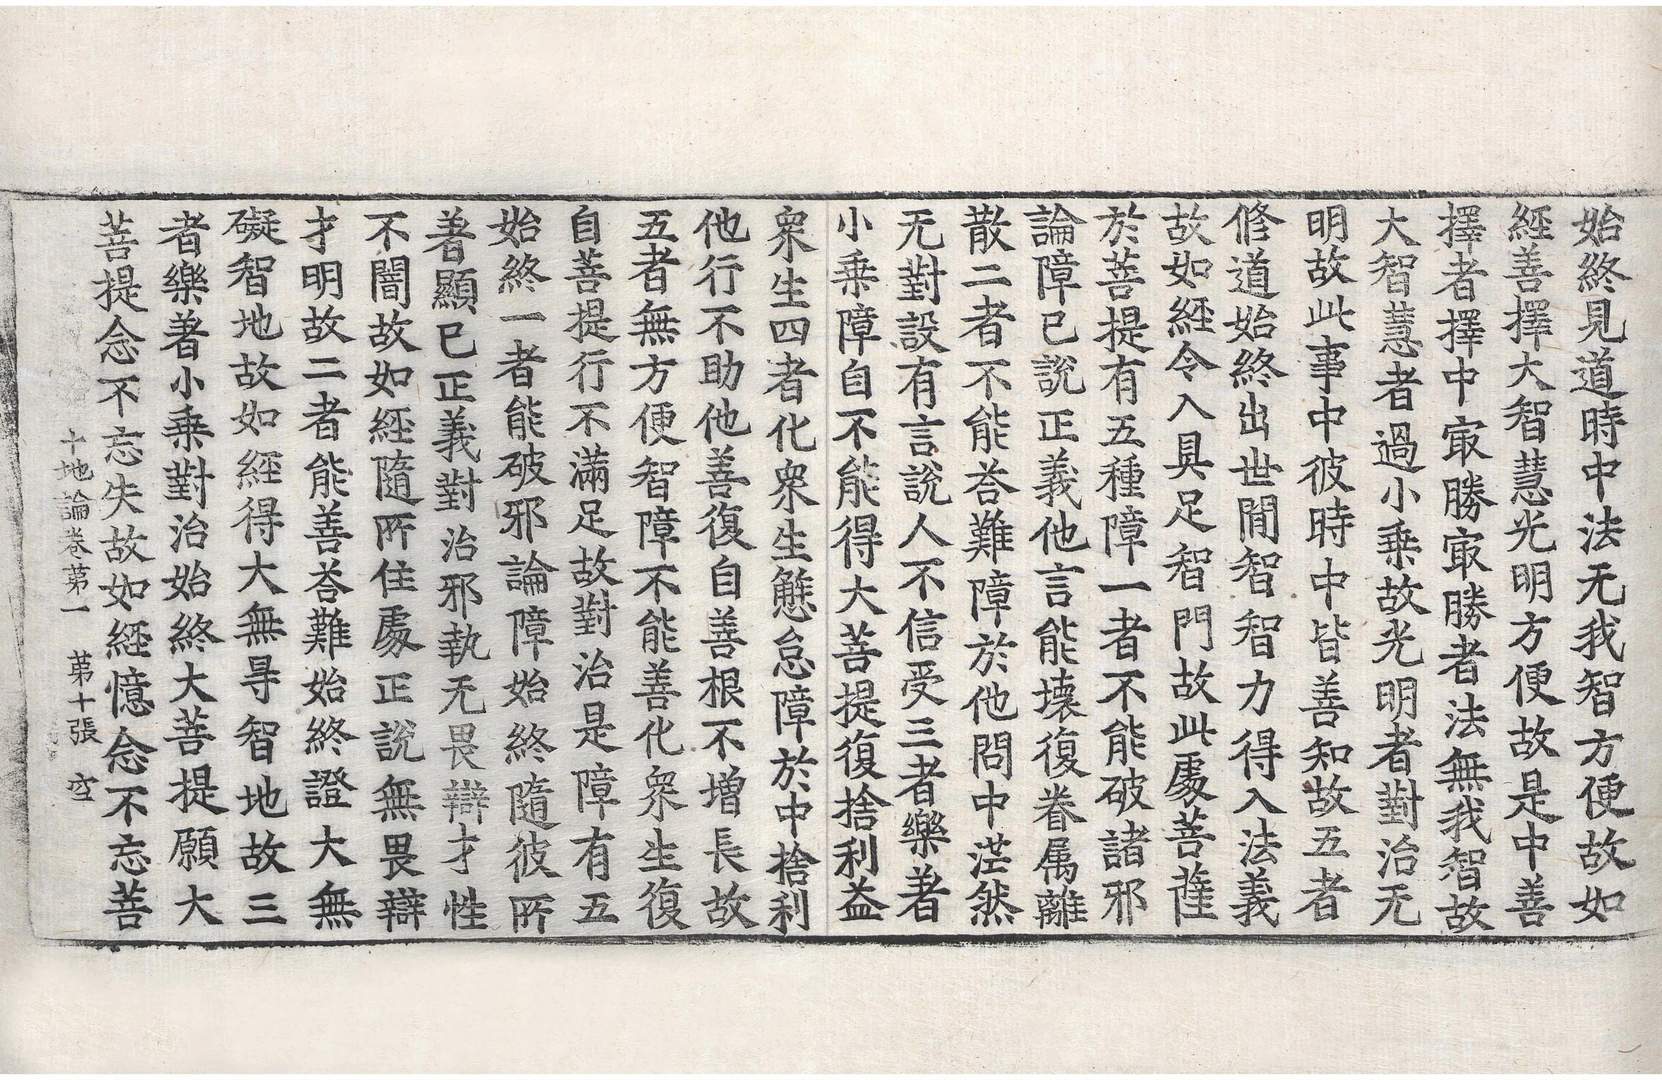 始終見道時中法无我智方便故如
經善擇大智慧光明方便故是中善
擇者擇中㝡勝㝡勝者法無我智故
大智慧者過小乗故光明者對治无
明故此事中彼時中皆善知故五者
修道始終出世間智智力得入法義
故如經令入具足智門故此處菩薩
於菩提有五種障一者不能破諸邪
論障已說正義他言能壞復眷属離
散二者不能荅難障於他問中茫然
无對設有言說人不信受三者樂著
小乗障自不能得大菩提復捨利益
衆生四者化衆生懈怠障於中捨利
他行不助他善復自善根不增長故
五者無方便智障不能善化衆生復
自菩提行不滿足故對治是障有五
始終一者能破邪論障始終隨彼所
著顯已正義對治邪執无畏辯才性
不闇故如經隨所住處正說無畏辯
才明故二者能善荅難始終證大無
礙智地故如經得大無㝵智地故三
者樂著小乗對治始終大菩提願大
菩提念不忘失故如經憶念不忘菩
十地論卷苐一　苐十張　空